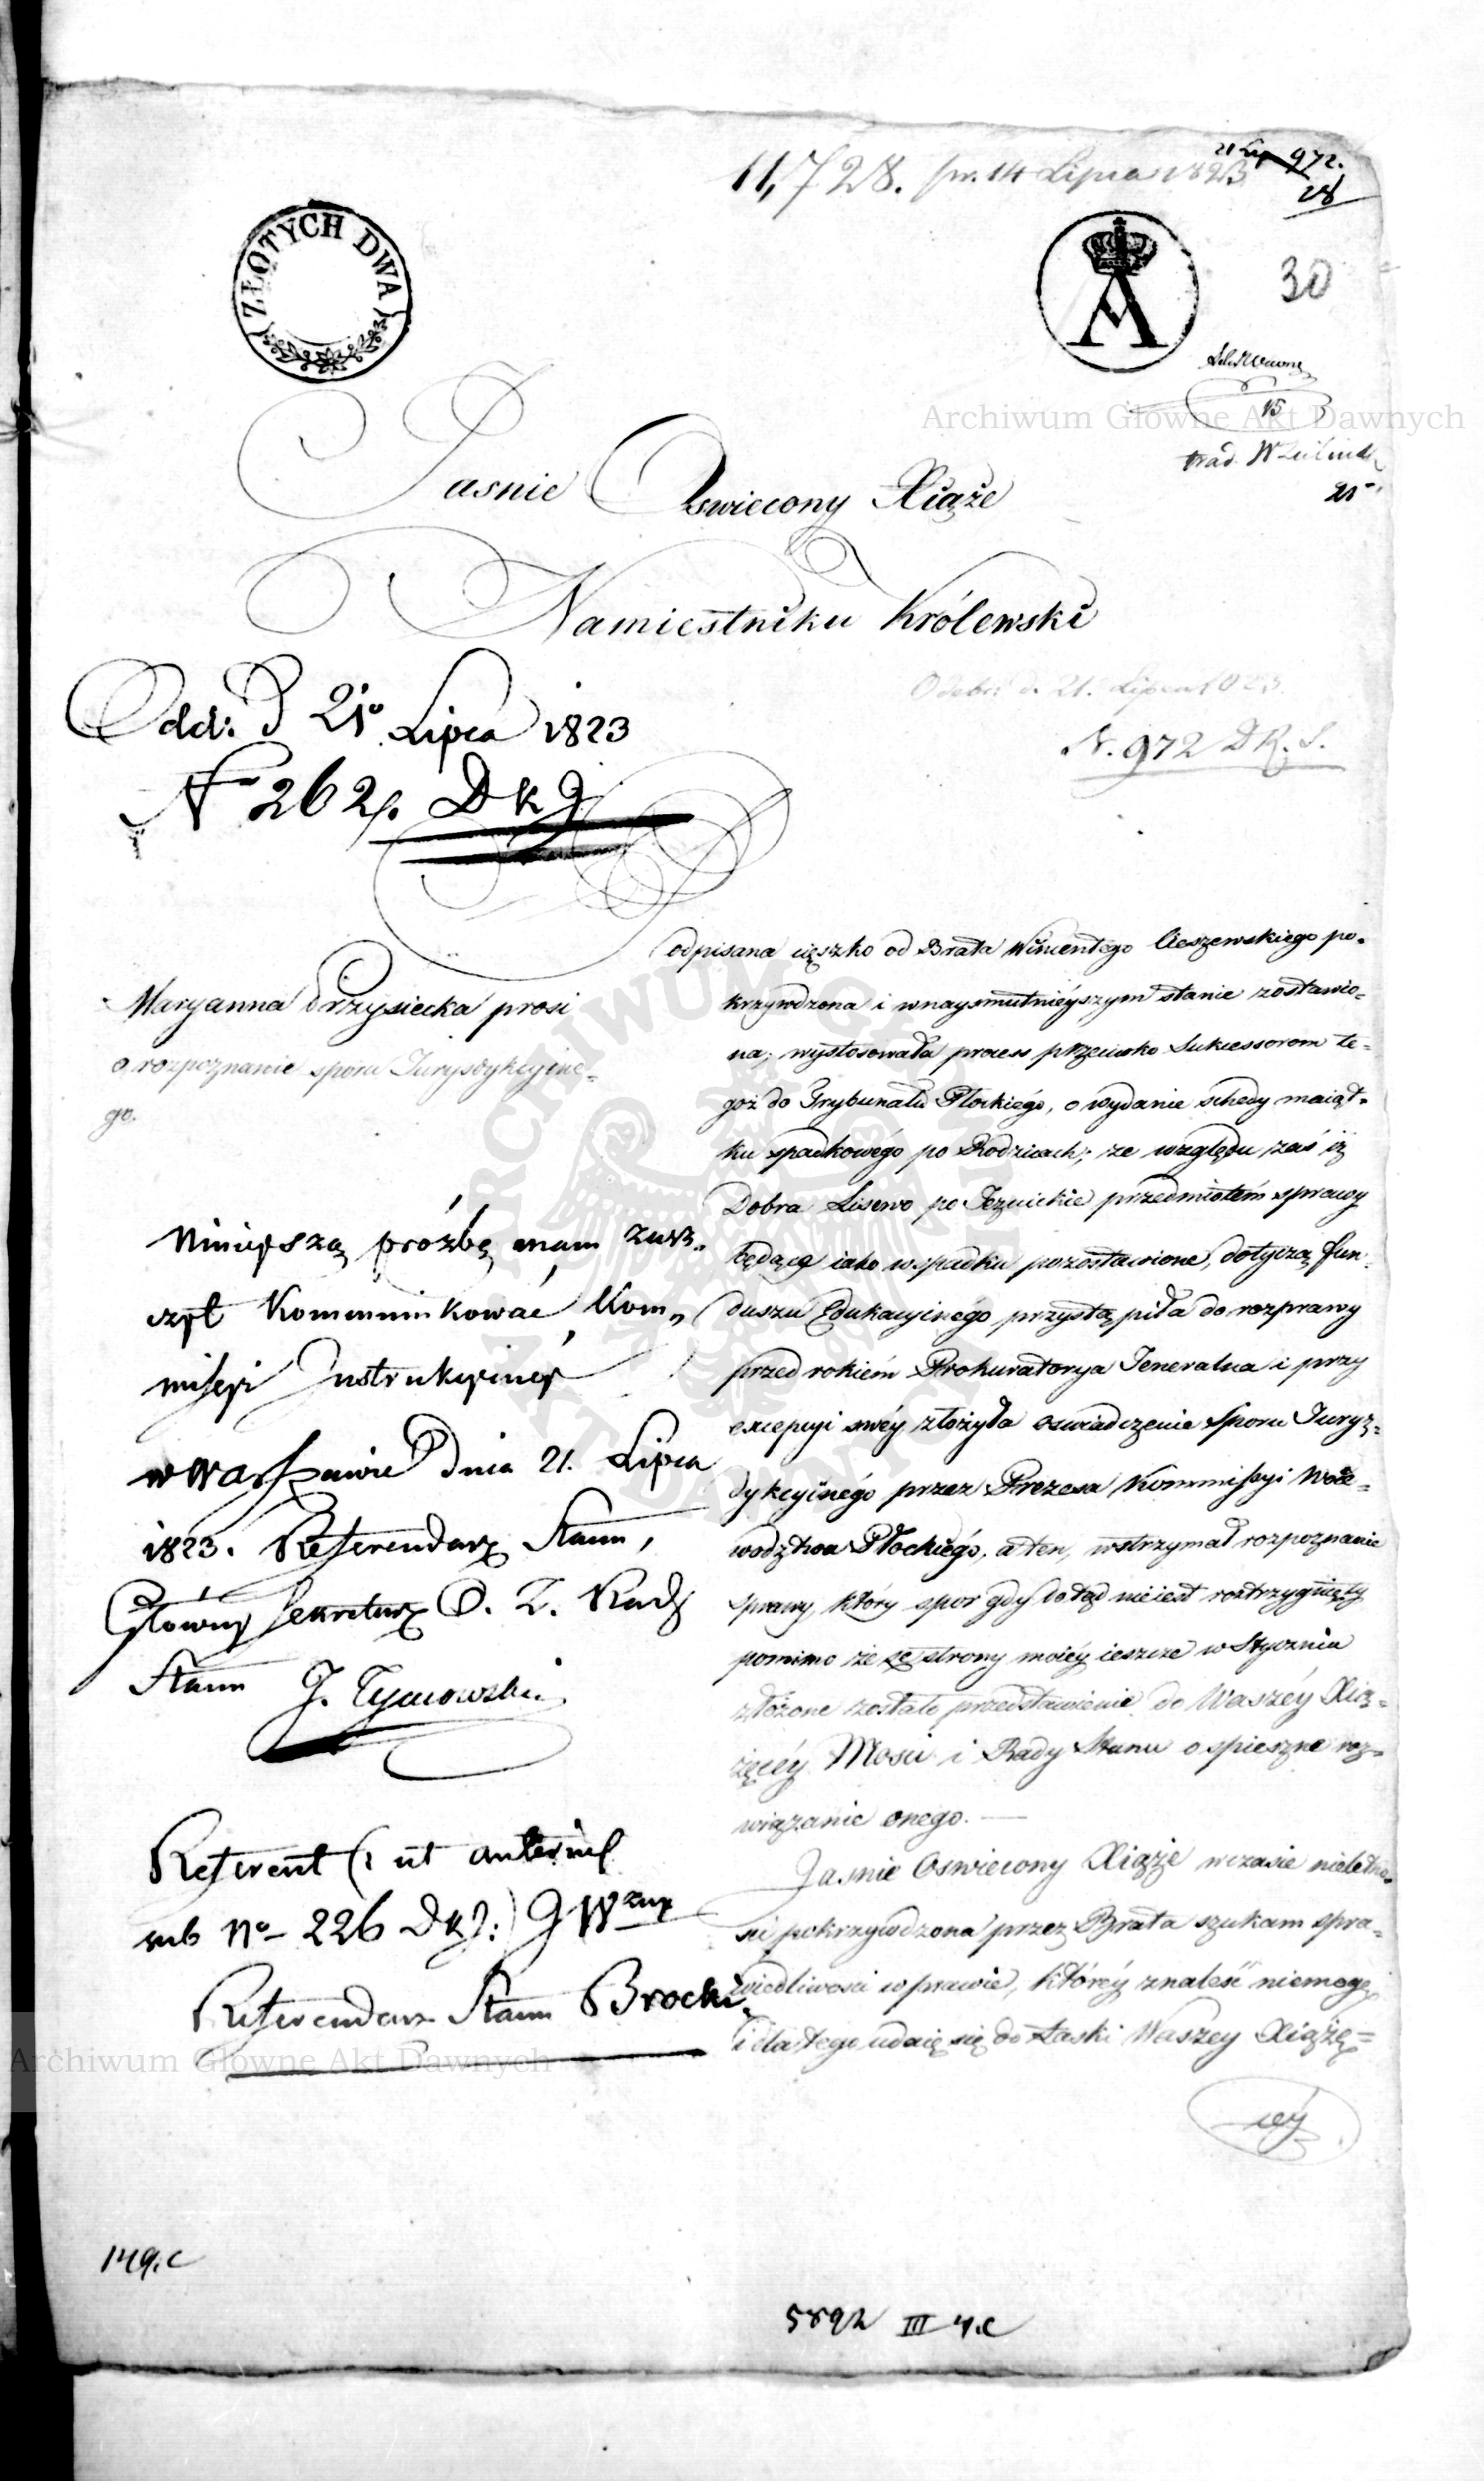 11,728. pr. 14 Lipca 1823
21 Lip 972.
28
ZŁOTYCH DWA
A
30
15
21
Jasnie Oswiecony Xiąże
Namiestniku Królewski
Odd: D 21° Lipca 1823
N 262. DKJ
Odebr: d. 21. Lipca 1823.
N. 972 D R. S.
Maryanna Przysiecka prosi
o rozpoznanie sporu Jurysdykcyine=
go.
Ninieyszą proźbę mam zasz„
czyt Kommunikować Kom„
missyi Instrukcyiney
w Warszawie Dnia 21. Lipca
1823. Referendarz Stanu,
Główny Sekretarz O. Z. Rady
Stanu J. Tymowski
Referent (: ut anterius
sub N° 226 DKJ:) JW
Referendarz Stanu Brocki.
odpisana cięszko od Brata Wincentego Cieszewskiego po=
krzywdzona i wnaysmutnieyszym stanie zostawio=
na; wystosowała process przeciwko Sukcessorom te=
goż do Trybunału Płockiégo, o wydanie schedy maiąt=
ku spadkowégo po Rodzicach; ze względu zaś iż
Dobra Lisewo po Jezuickie przedmiotém sprawy
będącę iako w spadku pozostawione, dotyczą fun=
duszu Edukacyinégo przystąpiła do rozprawy
przed rokiém Prokuratorya Jeneralna i przy
excepcyi swéy złożyła oswiadczenie Sporu Juryz=
dykcyinégo przez Prezesa Kommissyi Woie=
wodztwa Płockiégo, a ten, wstrzymał rozpoznanie
sprawy, który spor gdy dotąd nieiest roztrzygnięty
pomimo że ze strony moiéy ieszcze w Styczniu
złożone zostało przedstawienie do Waszéy Xią=
żęcéy Mosci i Rady Stanu o spieszne roz=
wiązanie onego. —
Jasnie Oswiecony Xiąże wczasie nieletno=
sci pokrzywdzona przez Brata szukam spra=
wiedliwosci w prawie, któréy znaleść niemogę
i dla tego udaię się do Łaski Waszey Xiążę=
céy
149.c
5892 III 4.c
Archiwum Główne Akt Dawnych
ARCHIWUM GŁÓWNE AKT DAWNYCH
Archiwum Główne Akt Dawnych